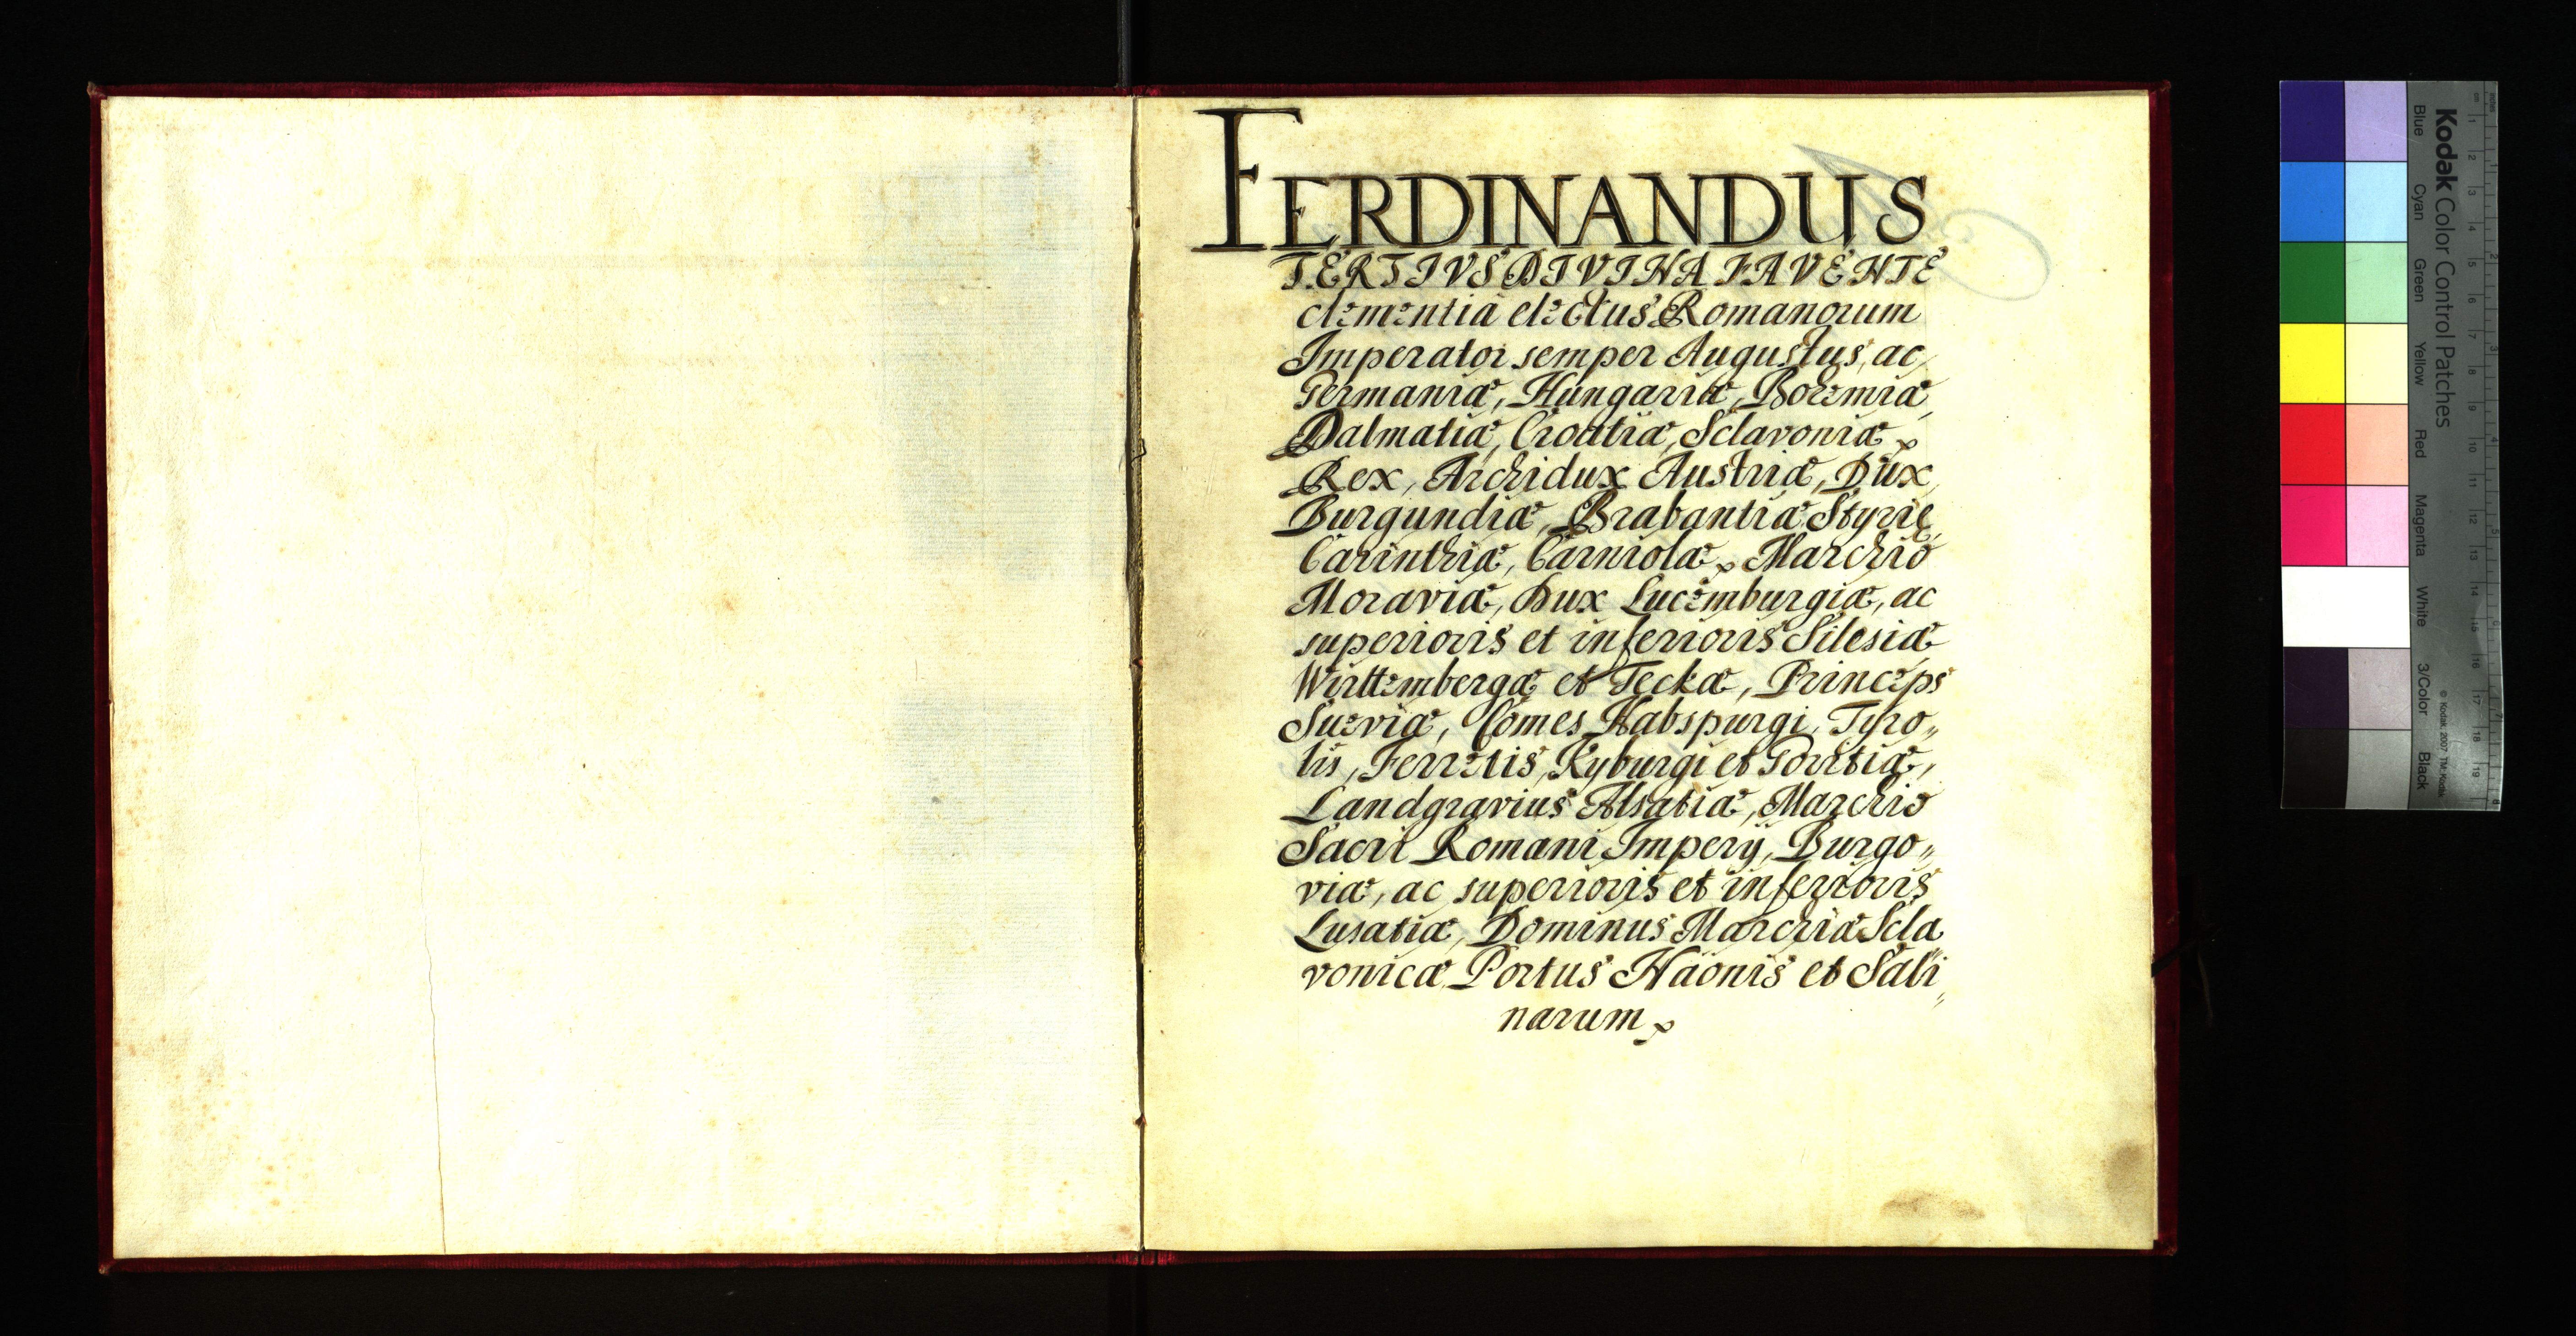 FERDINANDUS
TERTIVS DIVINA FAVENTE
clementia electus Romanorum
Imperator semper Augustus, ac
Germaniæ, Hungariæ, Boemiæ,
Dalmatiæ, Croatiæ, Sclavoniæ
Rex, Archidux Austriæ, Dux
Burgundiæ, Brabantiæ Styrię,
Carinthiæ, Carniolæ, Marchio
Moraviæ, Dux Lucemburgiæ, ac
superioris et inferioris Silesiæ
Wirttembergæ et Teckæ, Princeps
Sueviæ, Comes Habspurgi, Tyro„
lis, Ferretis, Kyburgi et Goritiæ,
Landgravius Alsatiæ, Marchio
Sacri Romani Imperij, Burgo„
viæ, ac superioris et inferioris
Lusatiæ, Dominus Marchiæ Scla
vonicæ Portus Naonis et Sali„
narum
Kodak Color Control Patches
Blue Cyan Green Yellow Red Magenta White 3/Color Black
© Kodak, 2007 TM: Kodak